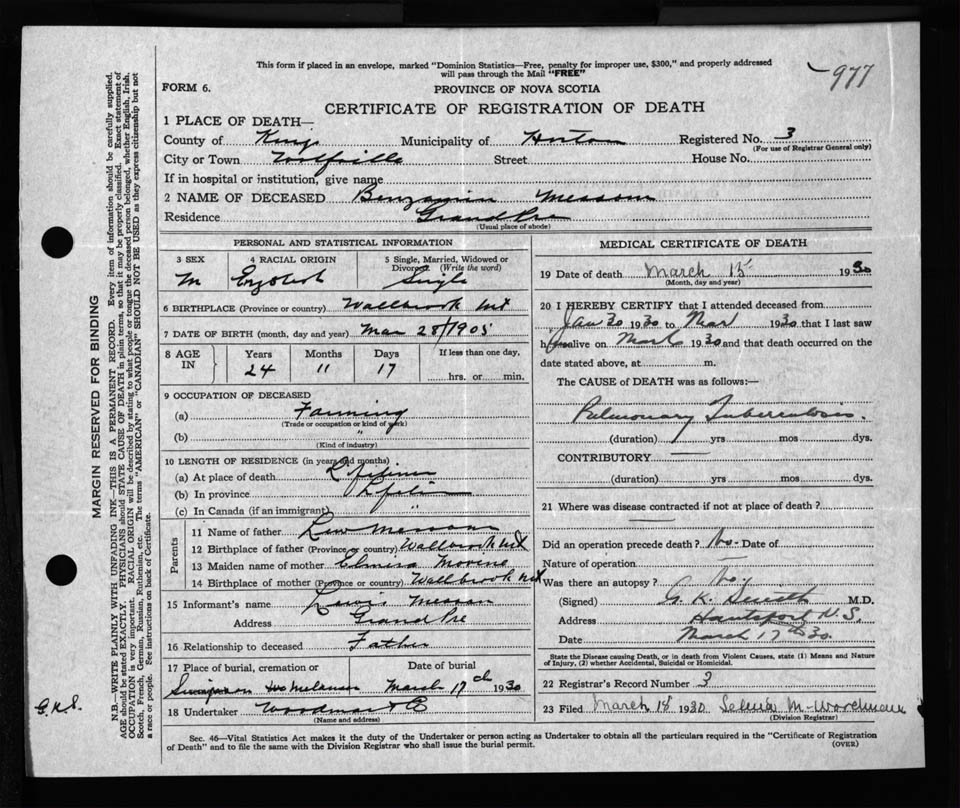 This form if placed in an envelope, marked "Dominion Statistics—Free, penalty for improper use, $300," and properly addressed
will pass through the Mail "FREE"
977
FORM 6.
PROVINCE OF NOVA SCOTIA
CERTIFICATE OF REGISTRATION OF DEATH
1 PLACE OF DEATH—
County of Kings Municipality of Horton Registered No. 3
(For use of Registrar General only)
City or Town Wolfville Street House No.
If in hospital or institution, give name
2 NAME OF DECEASED Benjamin Messom
Residence Grand Pre
(Usual place of abode)
PERSONAL AND STATISTICAL INFORMATION
3 SEX 4 RACIAL ORIGIN 5 Single, Married, Widowed or
Divorced (Write the word)
M English Single
6 BIRTHPLACE (Province or country) Wallbrook
7 DATE OF BIRTH (month, day and year) Mar 28/1905
8 AGE IN Years Months Days If less than one day,
24 11 17 hrs. or min.
9 OCCUPATION OF DECEASED
(a) Farming
(Trade or occupation or kind of work)
(b) "
(Kind of industry)
10 LENGTH OF RESIDENCE (in years and months)
(a) At place of death
(b) In province
(c) In Canada (if an immigrant) "
Parents
11 Name of father
12 Birthplace of father (Province or country) Wallbrook
13 Maiden name of mother Elmira
14 Birthplace of mother (Province or country) Wallbrook
15 Informant's name Lewis
Address Grand Pre
16 Relationship to deceased Father
17 Place of burial, cremation or Date of burial
March 17th 1930
18 Undertaker Woodman
(Name and address)
MEDICAL CERTIFICATE OF DEATH
19 Date of death March 15 1930
(Month, day and year)
20 I HEREBY CERTIFY that I attended deceased from
Jan 30 1930 to Mar 1930 that I last saw
h alive on Mar 1930 and that death occurred on the
date stated above, at m.
The CAUSE OF DEATH was as follows:—
Pulmonary Tuberculosis.
(duration) yrs mos dys.
CONTRIBUTORY
(duration) yrs mos dys.
21 Where was disease contracted if not at place of death?
Did an operation precede death? No Date of
Nature of operation
Was there an autopsy? No
(Signed) G. K. M.D.
Address Hantsport N.S.
Date March 17th 30
State the Disease causing Death, or in death from Violent Causes, state (1) Means and
Nature of Injury, (2) whether Accidental, Suicidal or Homicidal.
22 Registrar's Record Number 3
23 Filed March 18 1930 Selena M. Woodman
(Division Registrar)
Sec. 46—Vital Statistics Act makes it the duty of the Undertaker or person acting as Undertaker to obtain all the particulars required in the "Certificate of Registration
of Death" and to file the same with the Division Registrar who shall issue the burial permit.
(OVER)
MARGIN RESERVED FOR BINDING
N.B.—WRITE PLAINLY WITH UNFADING INK—THIS IS A PERMANENT RECORD. Every item of information should be carefully supplied.
AGE should be stated EXACTLY. PHYSICIANS should STATE CAUSE OF DEATH in plain terms, so that it may be properly classified. Exact statement of
OCCUPATION is very important. RACIAL ORIGIN will be described by stating to what people or tongue the deceased person belonged, whether English, Irish,
Scotch, French, German, Russian, Ruthenian, etc. The terms "AMERICAN" or "CANADIAN" SHOULD NOT BE USED as they express citizenship but not
a race or people. See instructions on back of Certificate.
G.K.S.